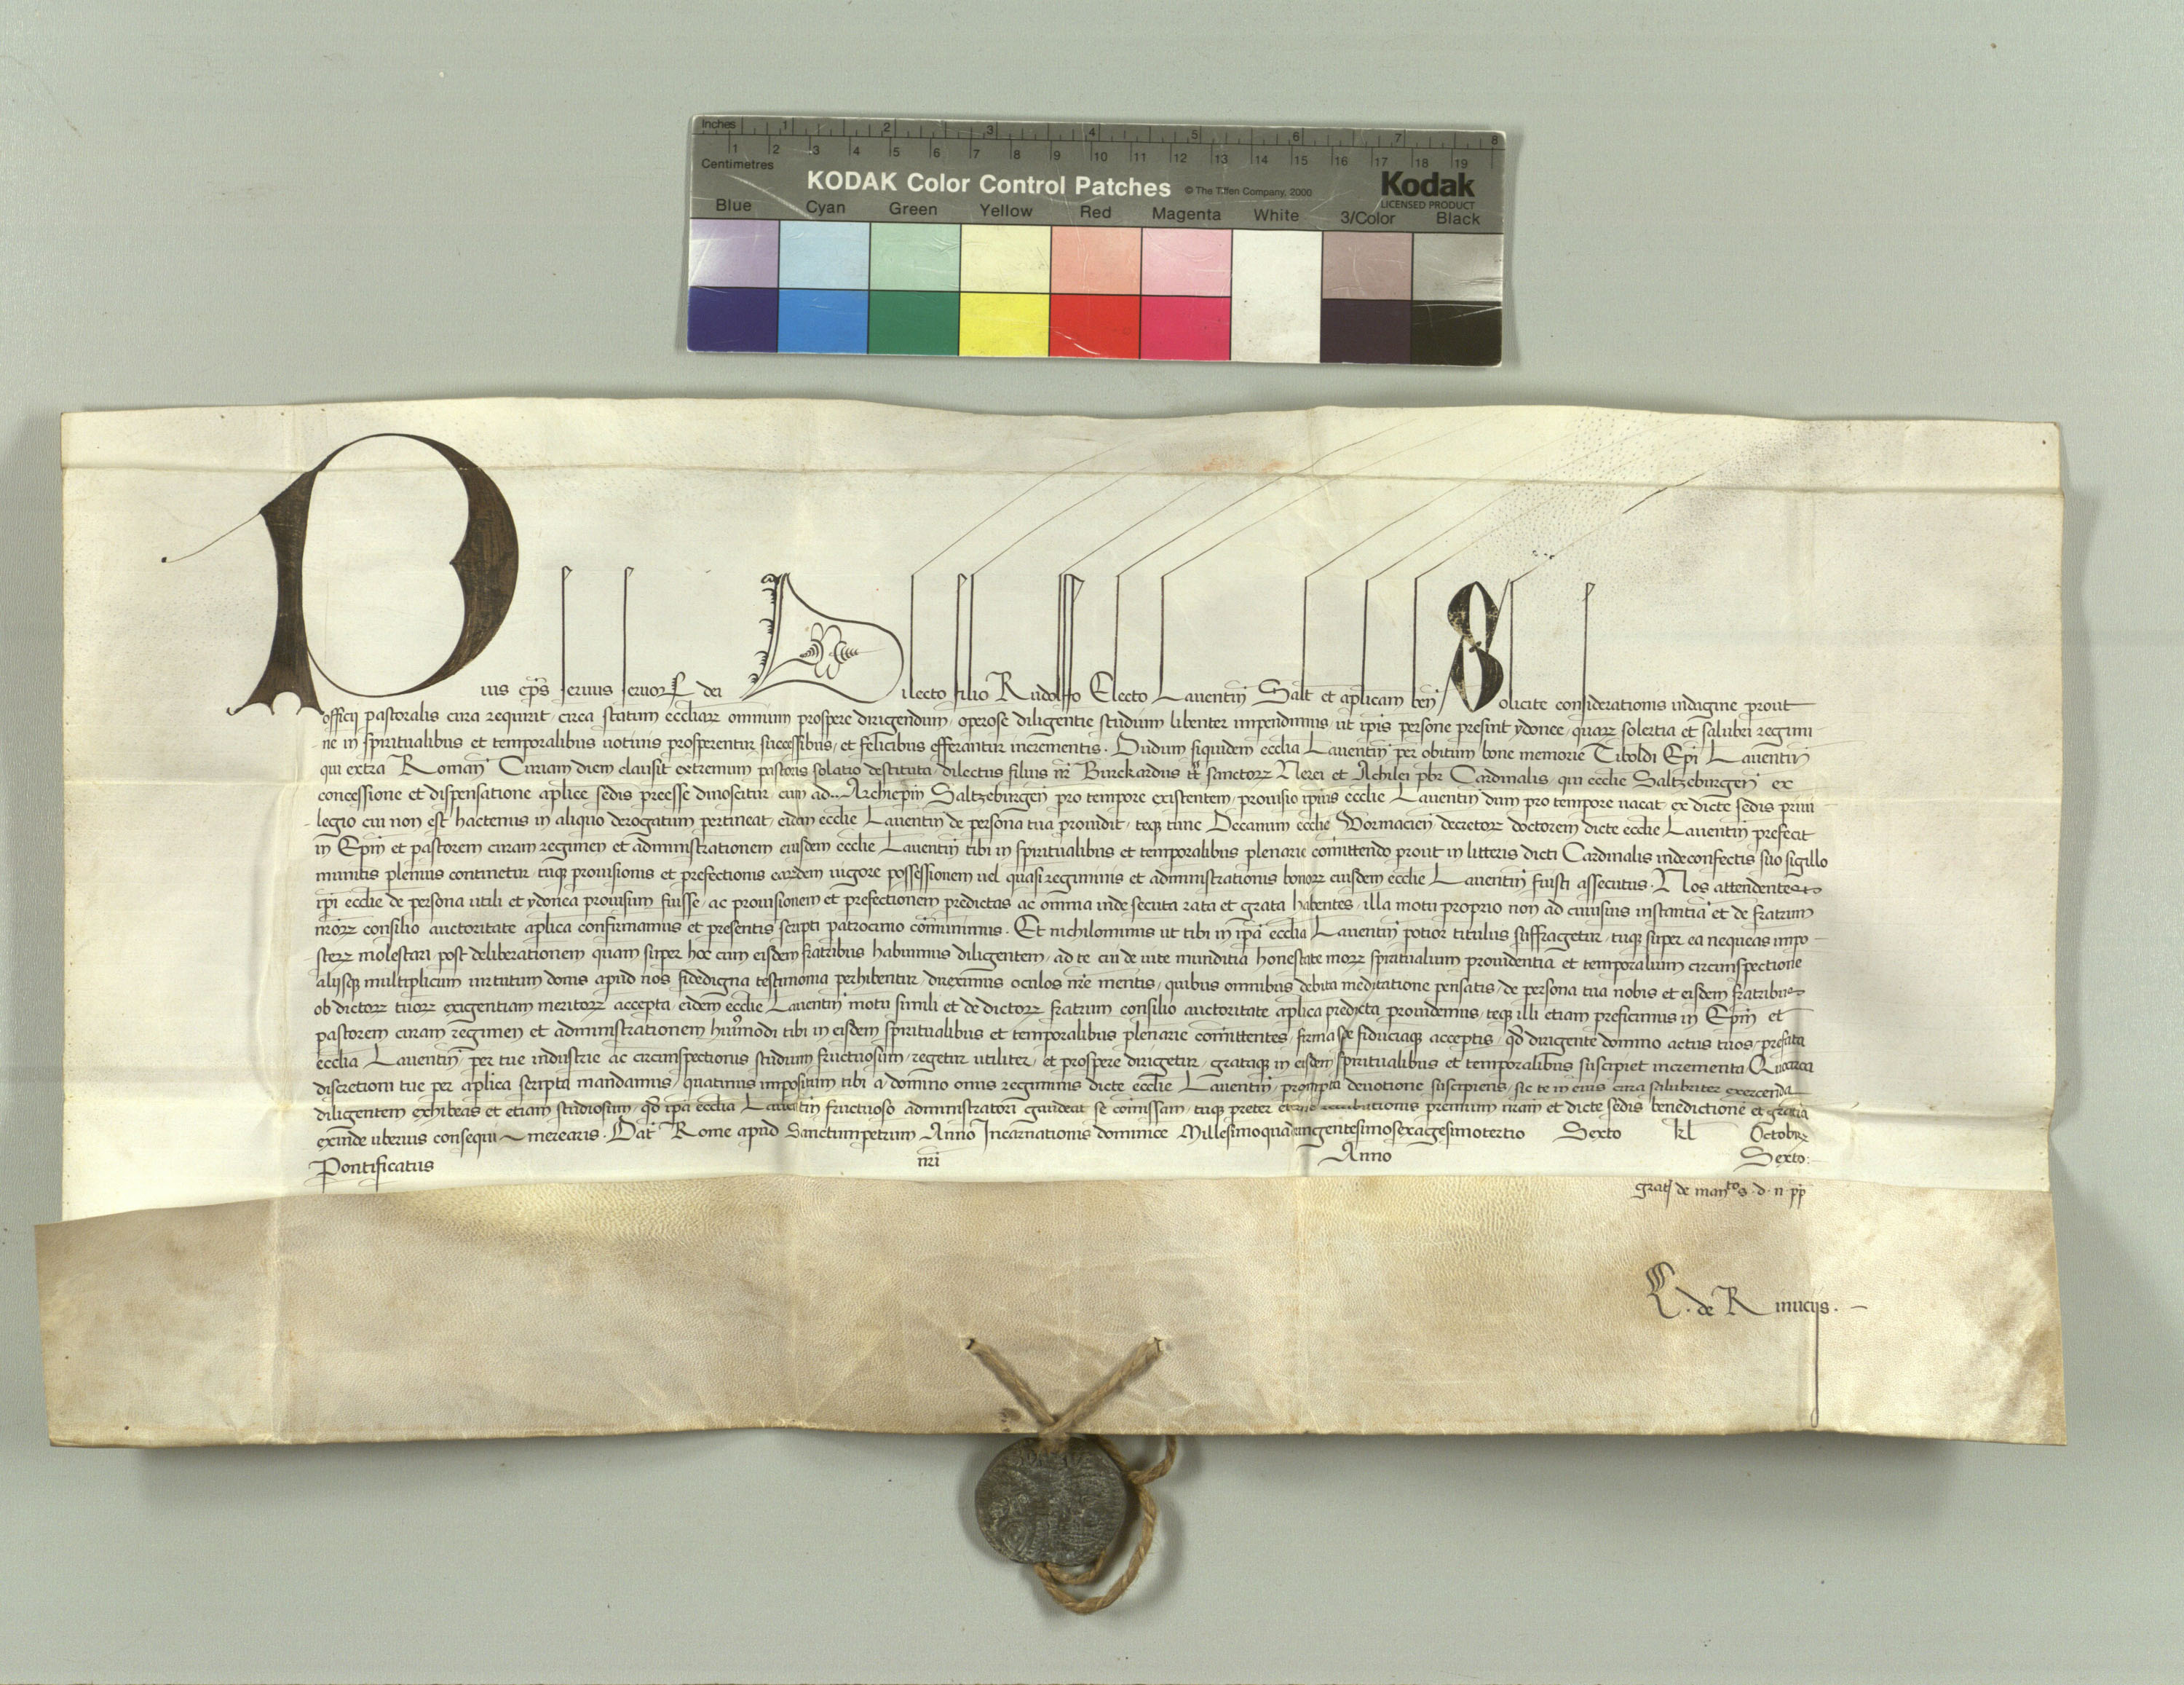 Inches 1 2 3 4 5 6 7 8
1 2 3 4 5 6 7 8 9 10 11 12 13 14 15 16 17 18 19
Centimetres
KODAK Color Control Patches © The Tiffen Company, 2000 Kodak
LICENSED PRODUCT
Blue Cyan Green Yellow Red Magenta White 3/Color Black
Pius ep̄s seruus seruoꝝ dei Dilecto filio Rudolffo Electo Lauentin̄ Salt̄ et ap̄licam ben̄ Solicite considerationis indagine prout
officij pastoralis cura requirit, circa statum eccliaꝝ omnium prospere dirigendum, operose diligentie studium libenter impendimus, ut ip̄is persone presint ydonee, quaꝝ solertia et salubri regimi-
ne in spiritualibus et temporalibus uotiuis prosperentur successibus, et felicibus efferantur incrementis. Dudum siquidem ecclia Lauentin̄ per obitum bone memorie Tiboldi Ep̄i Lauentin̄
qui extra Roman̄ Curiam diem clausit extremum pastoris solatio destituta, dilectus filius nr̄ Burckardus tt̄ sanctoꝝ Nerei et Achilei pbr̄ Cardinalis, qui ecclie Saltzeburgen̄ ex
concessione et dispensatione ap̄lice sedis preesse dinoscitur, cum ad .. Archiep̄m Saltzeburgen̄ pro tempore existentem, prouisio ip̄ius ecclie Lauentin̄ dum pro tempore uacat, ex dicte sedis priui-
legio cui non est hactenus in aliquo derogatum pertineat, eidem ecclie Lauentin̄ de persona tua prouidit, teqꝫ tunc Decanum ecclie Wormacien̄ decretoꝝ doctorem dicte ecclie Lauentin̄ prefecit
in Ep̄m et pastorem curam regimen et administrationem eiusdem ecclie Lauentin̄ tibi in spiritualibus et temporalibus plenarie com̄ittendo prout in litteris dicti Cardinalis indeconfectis suo sigillo
munitis plenius continetur, tuqꝫ prouisionis et prefectionis earumdem uigore possessionem uel quasi regiminis et administrationis bonoꝝ eiusdem ecclie Lauentin̄ fuisti assecutus. Nos attendentes
ip̄i ecclie de persona utili et ydonea prouisum fuisse, ac prouisionem et prefectionem predictas ac omnia inde secuta rata et grata habentes, illa motu proprio non ad cuiusuis instantia et de fratrum
nr̄oꝝ consilio auctoritate ap̄lica confirmamus et presentis scripti patrocinio com̄unimus. Et nichilominus ut tibi in ip̄a ecclia Lauentin̄ potior titulus suffragetur, tuqꝫ super ea nequeas impo-
steꝝ molestari post deliberationem quam super hoc cum eisdem fratribus habuimus diligentem, ad te cui de uite munditia honestate moꝝ spiritualium prouidentia et temporalium circunspectione
alijsqꝫ multiplicum uirtutum donis apud nos fidedigna testimonia perhibentur, direximus oculos nr̄e mentis, quibus omnibus debita meditatione pensatis, de persona tua nobis et eisdem fratribus
ob dictoꝝ tuoꝝ exigentiam meritoꝝ accepta, eidem ecclie Lauentin̄ motu simili et de dictoꝝ fratrum consilio auctoritate ap̄lica predicta prouidemus, teqꝫ illi etiam preficimus in Ep̄m et
pastorem curam regimen et administrationem huiᵒmodi tibi in eisdem spiritualibus et temporalibus plenarie com̄ittentes, firma spe fiduciaqꝫ acceptis, qd̄ dirigente domino actus tuos, prefata
ecclia Lauentin̄ per tue industrie ac circunspectionis studium fructuosum, regetur utiliter, et prospere dirigetur, grataqꝫ in eisdem spiritualibus et temporalibus suscipiet incrementa Quocirca
discretioni tue per ap̄lica scripta mandamus, quatinus impositum tibi a domino onus regiminis dicte ecclie Lauentin̄ prompta deuotione suscipiens, sic te in eius cura salubriter exercenda
diligentem exhibeas et etiam studiosum, qd̄ ip̄a ecclia Lauentin̄ fructuoso administratori gaudeat se com̄issam, tuqꝫ preter eterne retributionis premium nr̄am et dicte sedis benedictione et gratia
exinde uberius consequi merearis. Dat̄ Rome apud Sanctumpetrum Anno Incarnationis dominice Millesimoquadringentesimosexagesimotertio Sexto kl̄ Octobrꝝ
Pontificatus nr̄i Anno Sexto.
grat̄ de manᵗᵒ s. d. n. pp̄
L. de Rinucijs.